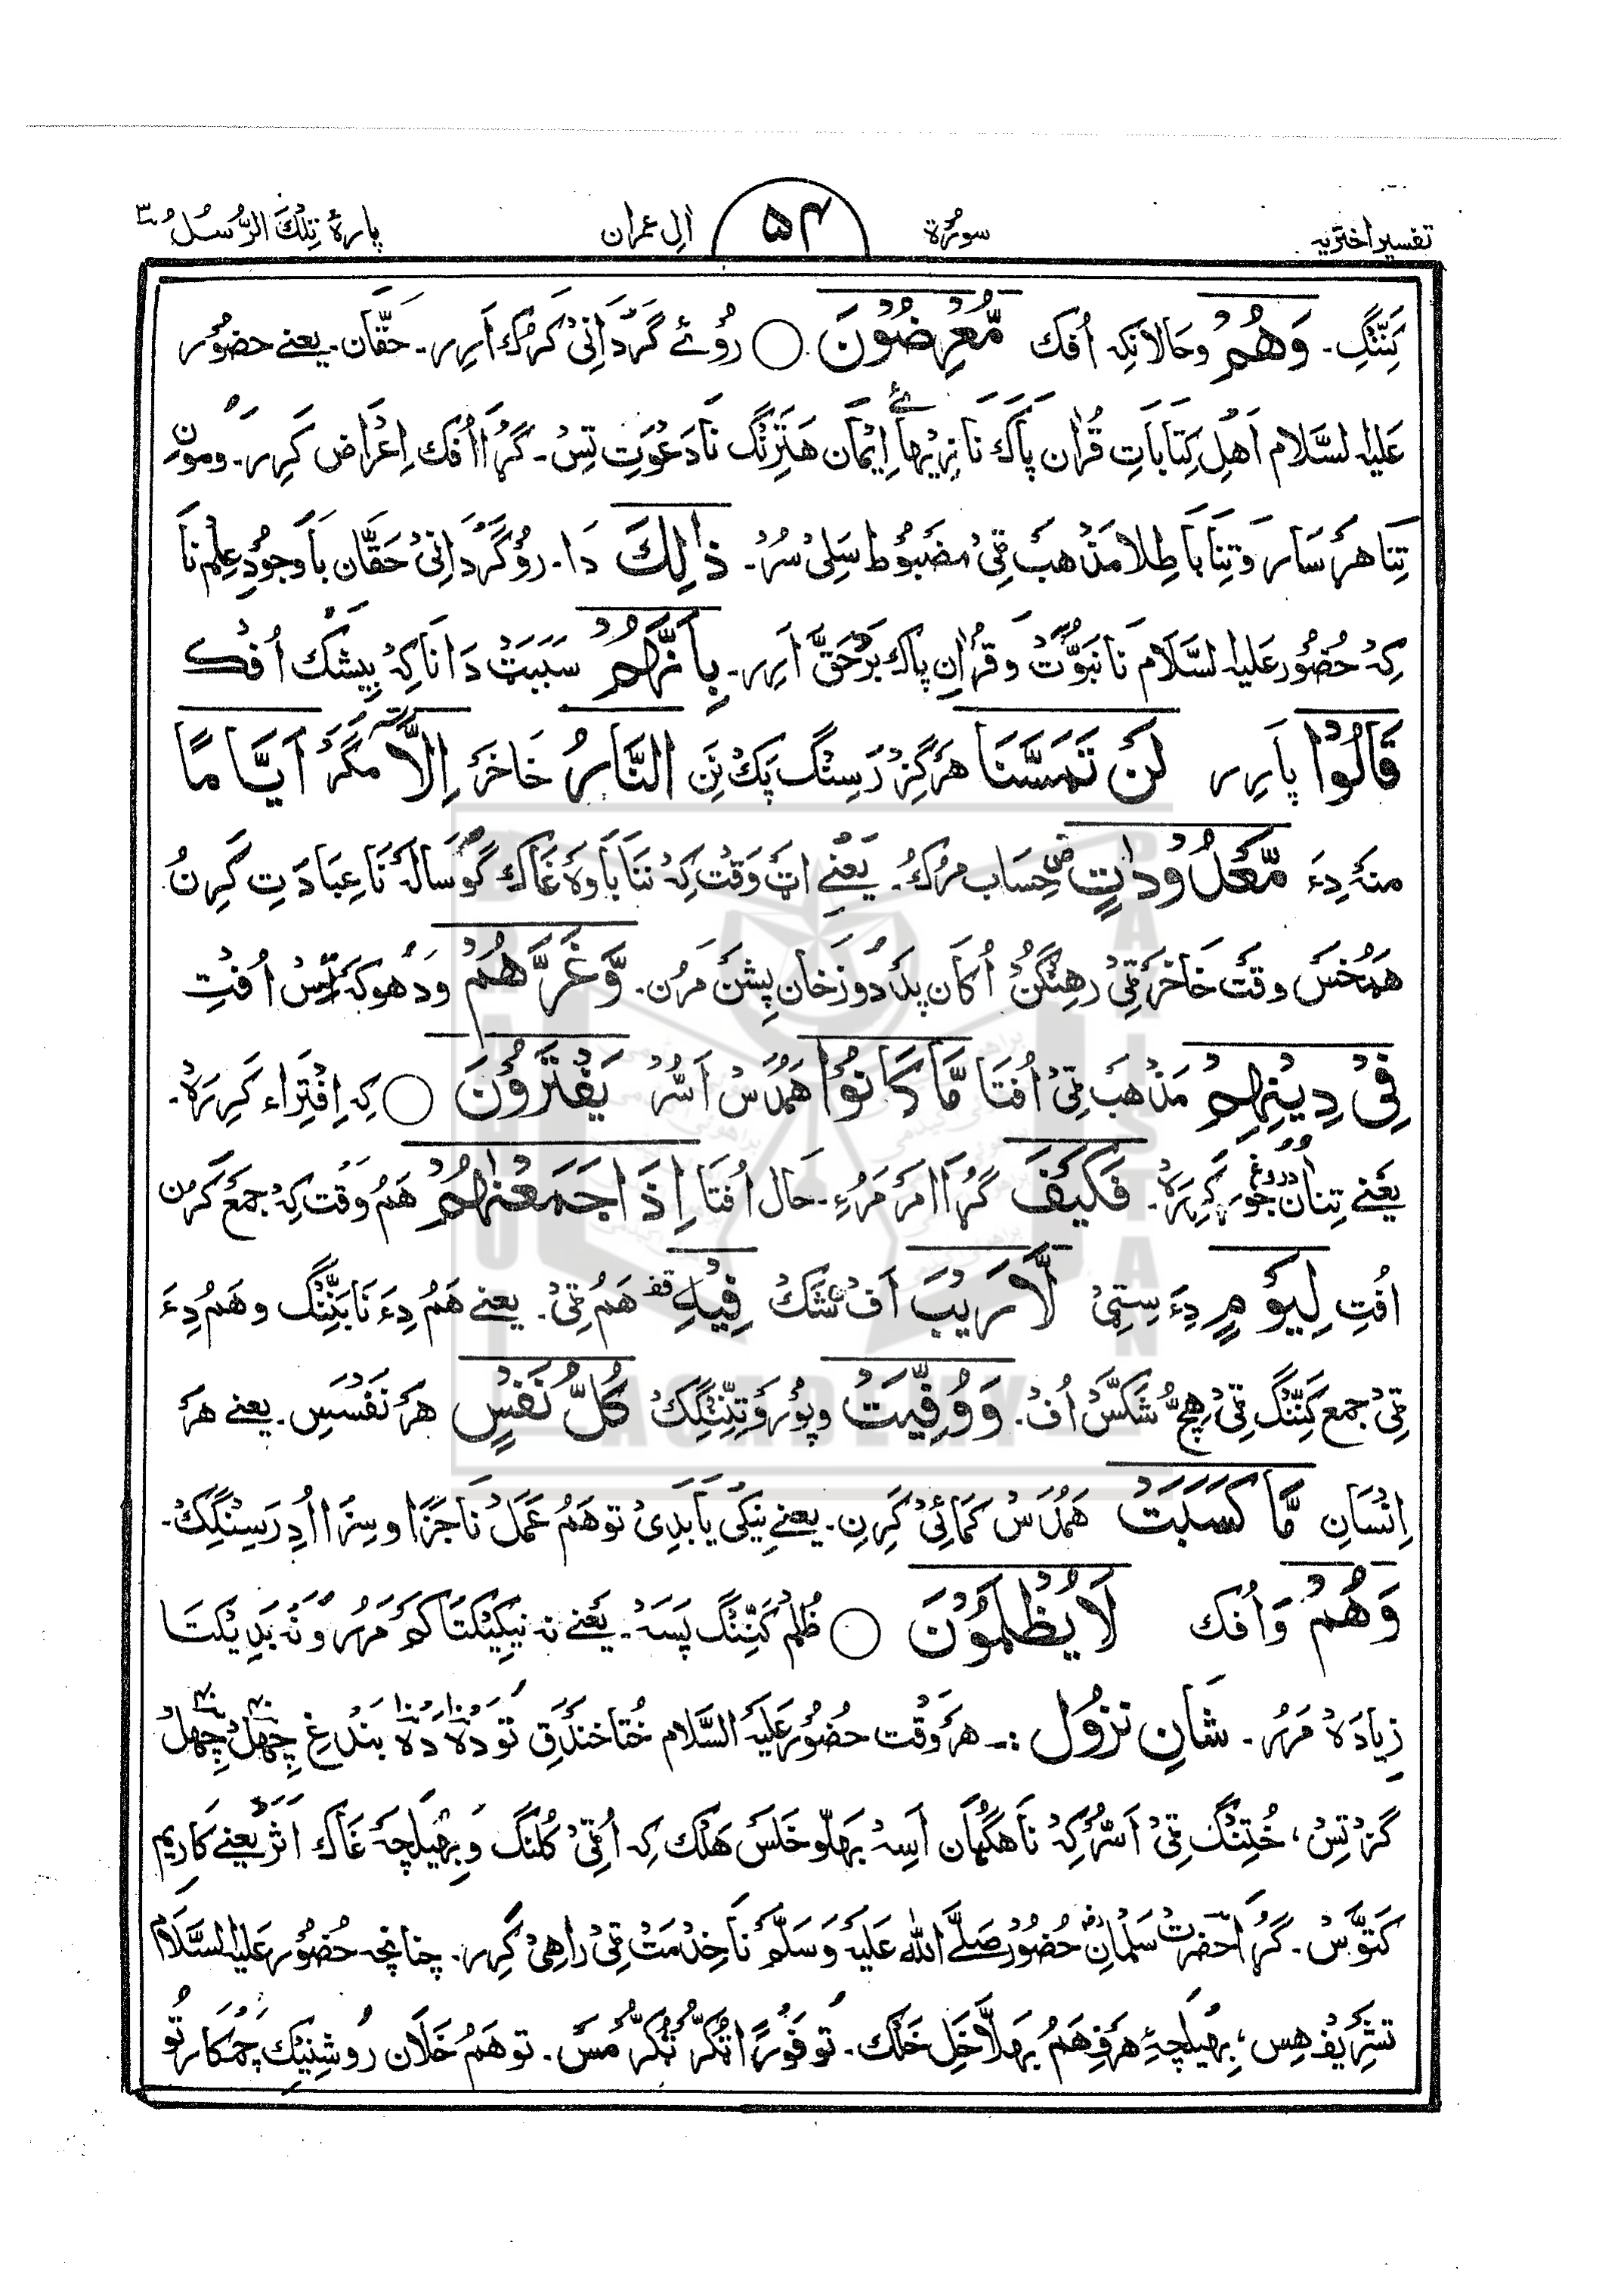 تفسیر اختریہ سوُرۃ ۵۴ اٰلِ عمران پارۂ تِلْكَ الرُّسُلُ ۳
کِنِّنْگِ ۔ وَهُمْ وحالانکہ اُفک مُّعْرِضُوْنَ ○ رُوْئے گَرْدَانِیْ کَرُک اَرِیر ۔ حَقّان ۔ یعنے حضوُر
عَلیہِ لسَّلام اَهْلِ کِتَابَاتِ قُراٰن پَاک نَا زِیْهَا ئے اِیْمَان هَتِرْنگ نَا دَعْوَتِ تِسْ ۔ گُڑا اُفک اِعْرَاض کَرِیر ۔ ومون
تِنَا هَرسَار وَتِنَا بَاطِلا مَذْهبْ ٹِیْ مضبوُط سَلِیْ سُر ۔ ذٰلِكَ دَا ۔ رُوْگَرْدَانِیْ حَقَّان بَاوجوُدِ عِلْم نَا
کِہْ حُضوُر عَلیہِ لسَّلَام نَا نبوَّتْ و قرُاٰنِ پاک بَرْحَقّ اَرِیر ۔ بِاَنَّهُمْ سَبَبَتْ دَانَا کِہْ بیشک اُفک
قَالُوْا پَارِیر لَنْ تَمَسَّنَا هَرْگِزْ رَسِنْگ پَک نَنِ النَّارُ خَاخَرْ اِلَّآ مَگَرْ اَیَّامًا
منہ دِءَ مَّعْدُوْدٰتٍ حِسَاب مرُک ۔ یَعْنِے اٹ وَقْت کِہْ نَنَا بَاوَہ غَاک گَوُسَالَہ نَا عِبَادَتِ کَرِنُ
هَمُخَس وقت خَاخَرٹِیْ رهنگنُ اُکَان پدَ دوُزخان پِشَن مَرُن ۔ وَّغَرَّهُمْ ودَهوکہ تِس اُفتِ
فِیْ دِیْنِهِمْ مَذْهَبْ ٹِیْ اُفتَا مَّا كَانُوْا هَمُدَسْ اَسُّر یَفْتَرُوْنَ ○ کِہ اِفْتِرَاء کَرِیرَہْ ۔
یَعْنے تِنَان دروغ جوڑ کَرِیرَہ ۔ فَکَیْفَ گڑا اَمَر مَرُءِ ۔ حَال اُفتَا اِذَا جَمَعْنٰهُمْ هَمْ وَقْت کِہْ جمَعْ کَرُن
اُفتِ لِیَوْمٍ دِءَ سِتِیْ لَّا رَیْبَ اَفْ شَکْ فِیْهِ قف هَمُ ٹِیْ ۔ یعنے هَمُ دِءَ نَا بَنِّنگ وهَمُ دِءَ
ٹِیْ جمع کِنِّنْگ ٹِیْ هِچّ شَکَسْ اُفْ ۔ وَوُفِّیَتْ وپوُروَ تِنِنْگِکْ كُلُّ نَفْسٍ هَرْ نَفْسَسِ ۔ یعنے هَرْ
اِنْسَانِ مَّا کَسَبَتْ هَمُدَسْ کَمَائِیْ کَرِنِ ۔ یعنے نِیکَی یَا بَدِیْ تو هَمُ عَمَلْ نَا جَزَا و سِزَا اُدِ رَسِنْگِکْ ۔
وَهُمْ وَ اُفک لَا یُظْلَمُوْنَ ○ ظُلْم کِنِّنْگ پَسَہْ ۔ یَعْنے نہ نِیکِیْکتَا کَم مَرِر وَ نَہ بَدِیْکتَا
زِیادَہْ مَرِر ۔ شَانِ نزُول :۔ هَرْوَقْت حضوُر عَلَیْہِ السَّلام خُتَا خندَقِ تَو دَہْ ۱۰ دَہْ ۱۰ بَنْدَغِ چِهْل ۴۰ چِهْل ۴۰
گز تِس ، خُتِنگ ٹِیْ اَسُّر کِہْ نَاهگہان اَسِہْ بَهلّو خَلَسْ هَلک کِہ اُٹِیْ کُلَنگ وَبِهْیلچَہ غَاک اَثَرْ یعنے کَاریم
کَتوَّسْ ۔ گُڑا حضرت سَلمانؓ حُضوُر صَلَّے اللّٰہُ عَلَیْہِ وَسَلَّمْ نَا خِدْمَتْ ٹِیْ رَاهِیْ کَرِیر ۔ چنانچہ حُضوُر عَلیہِ لسَّلَام
تشْرِیْف هِس ، بِهْیلچَۂِ هَرْفِ هَمُ بَهلَّا خَل خَلک ۔ تو فَوُرًا ٹُکُرّ ٹُکُرّ مَسْ ۔ تو هَمُ خَلَان رُوشِنِیْک چَمْکارتوُ